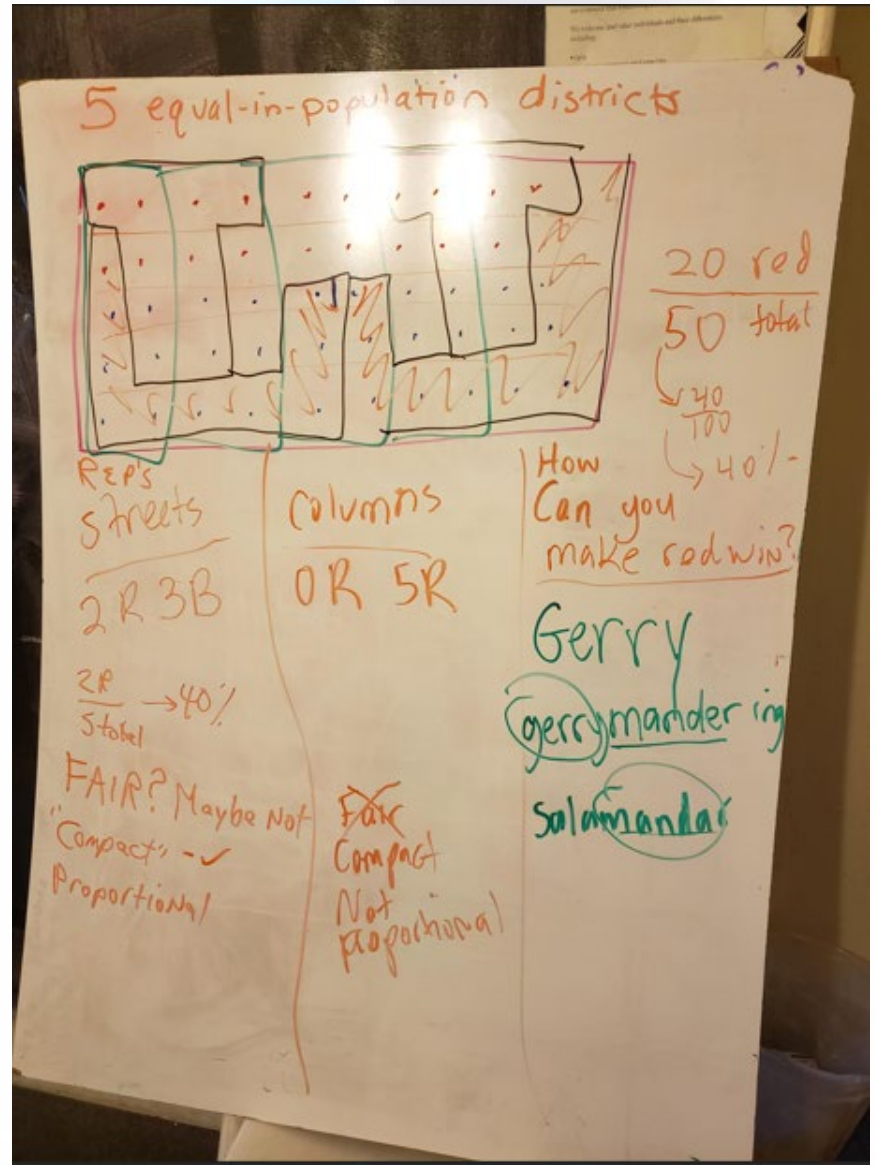 5 equal-in-population districts
20 red
50 total
40
100
40%
REP'S
Streets
2R 3B
2R
5 total
→40%
FAIR? Maybe Not
"Compact" - ✓
Proportional
Columns
0R 5R
Fair
Compact
Not
proportional
How
Can you
make red win?
Gerry
gerrymandering
Salamandar